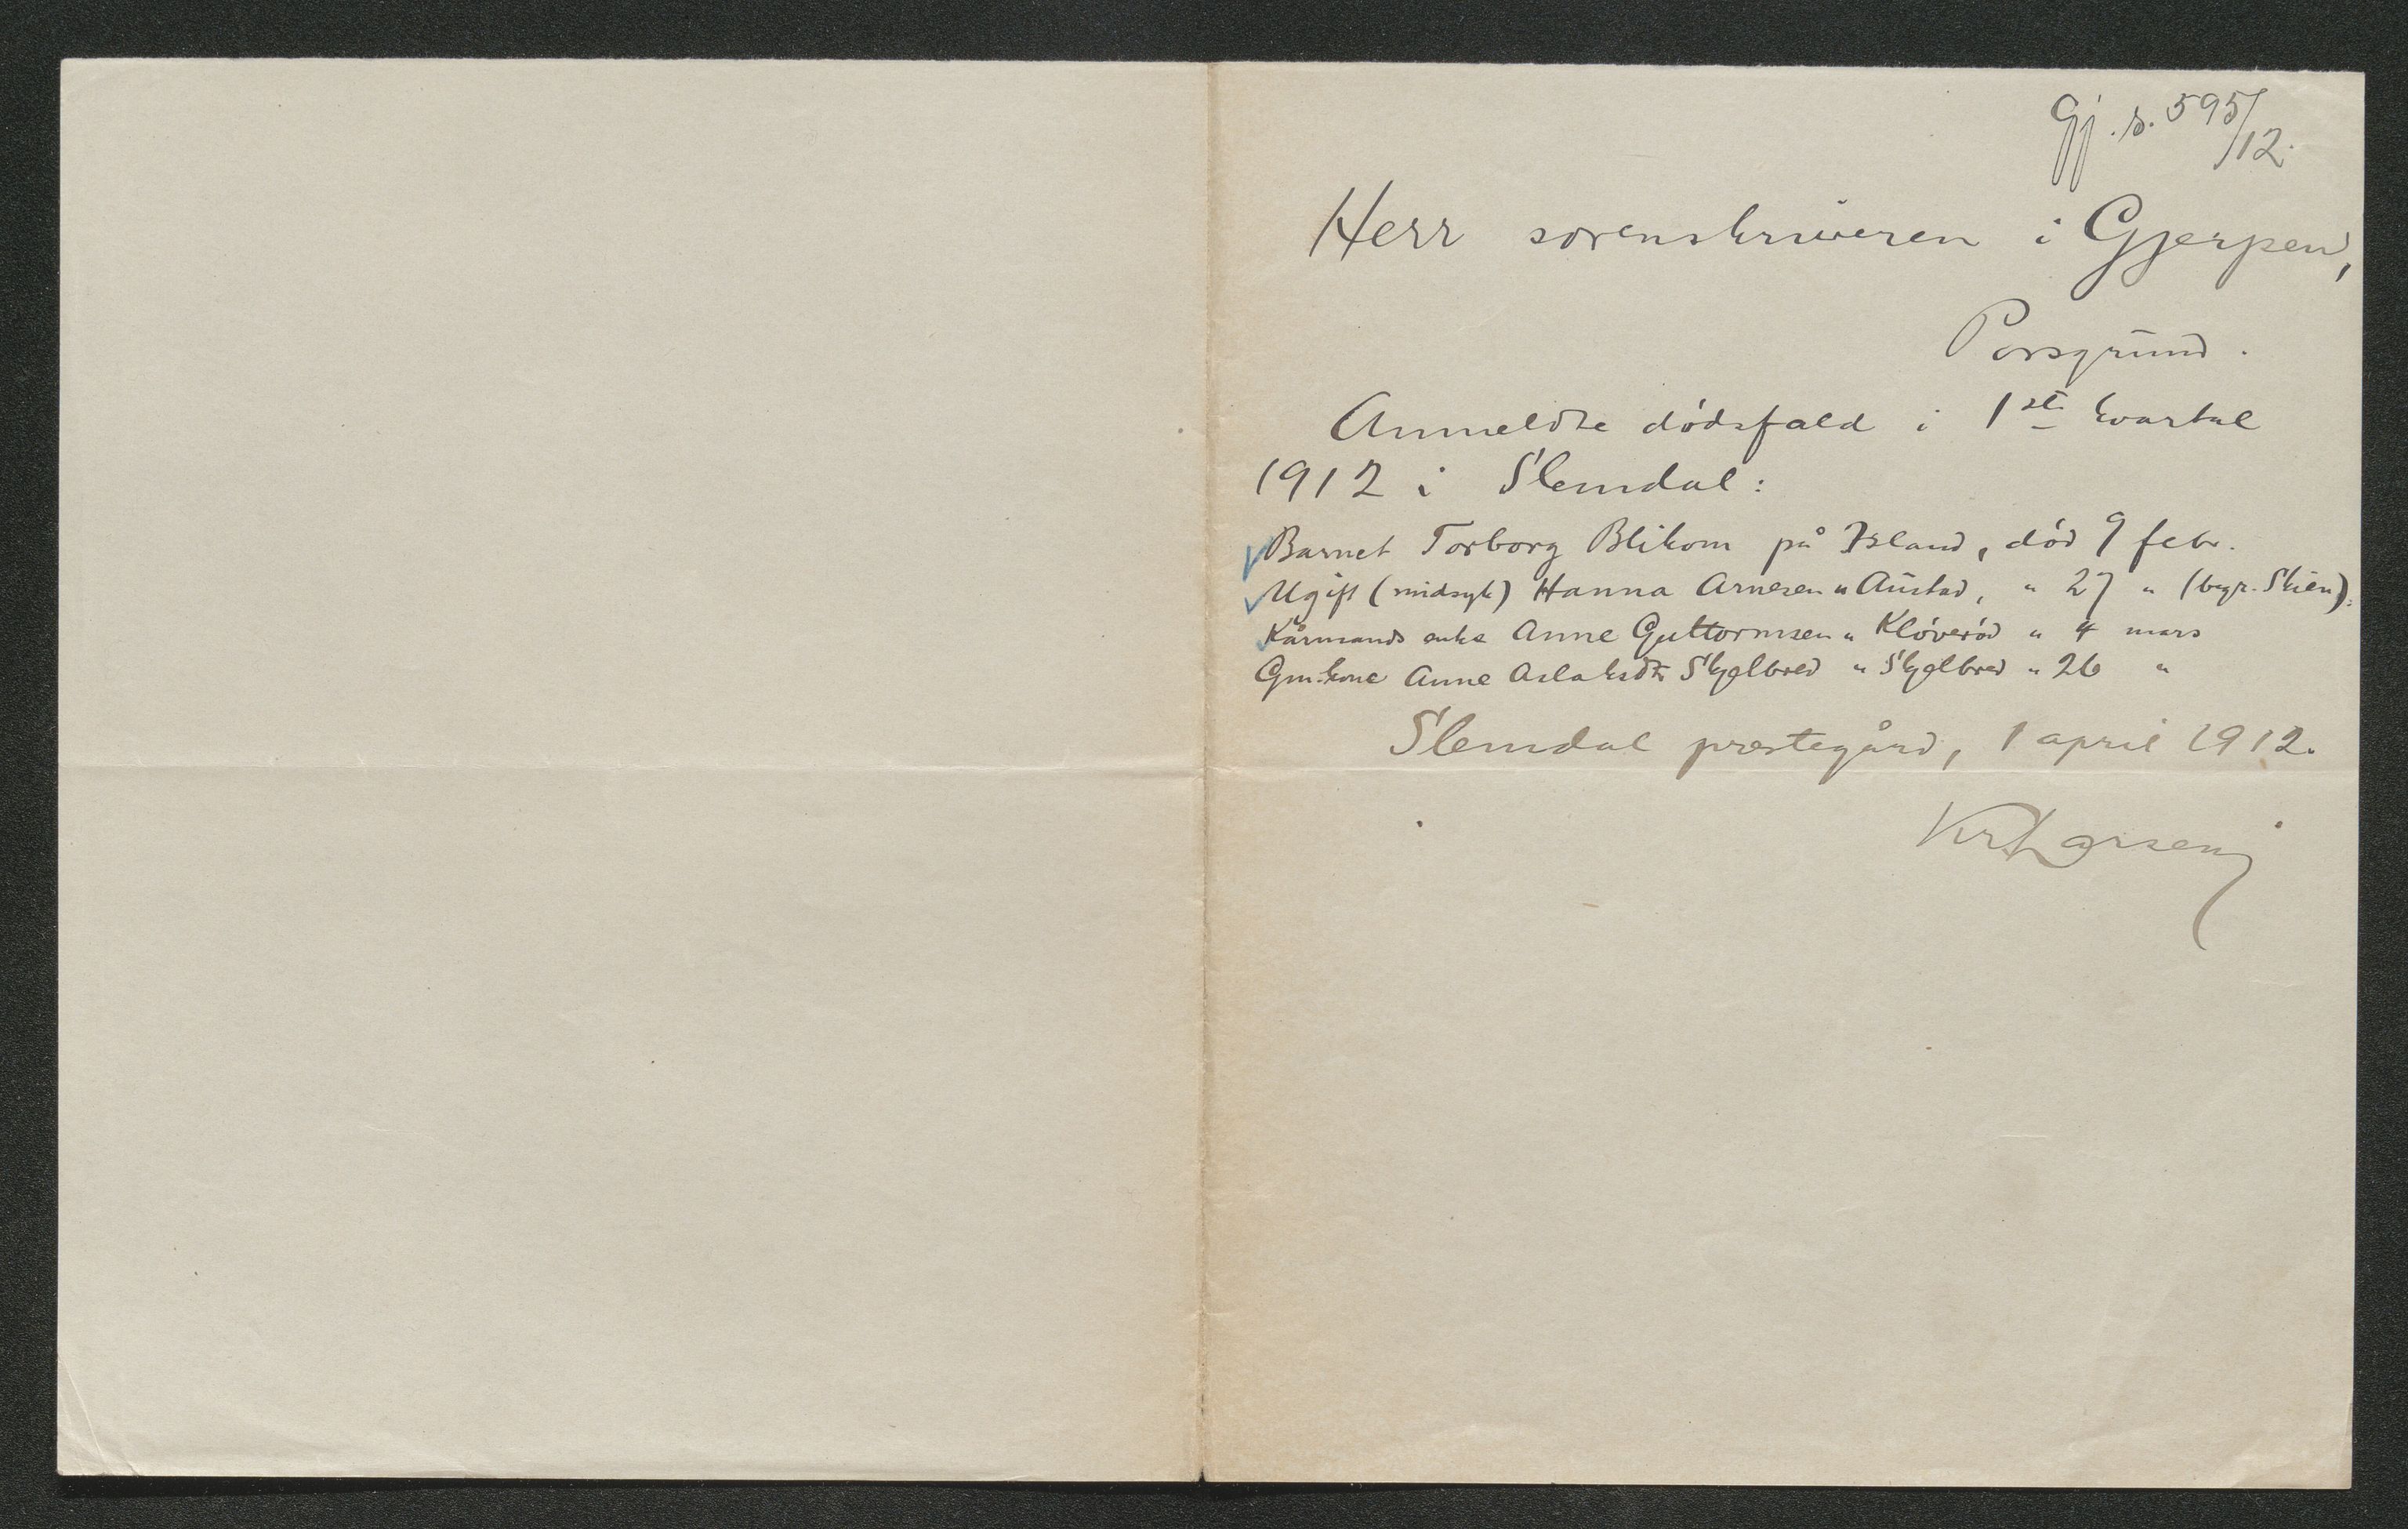 Gj. s. 595/12.
Herr sorenskriveren i Gjerpen,
Porsgrund.
Anmeldte dødsfald i 1ste kvartal
1912 i Slemdal:
Barnet Torborg Blikom på Island, død 9 febr.
Ugift (sindsyk) Hanna Arnesen " Austad, " 27 " (begr. Skien).
Kårmands enke Anne Guttormsen " Kløverød " 4 mars
Gm.kone Anne Aslaksdtr Skjelbred " Skjelbred " 26 "
Slemdal prestegård, 1 april 1912.
Kr. Larsen